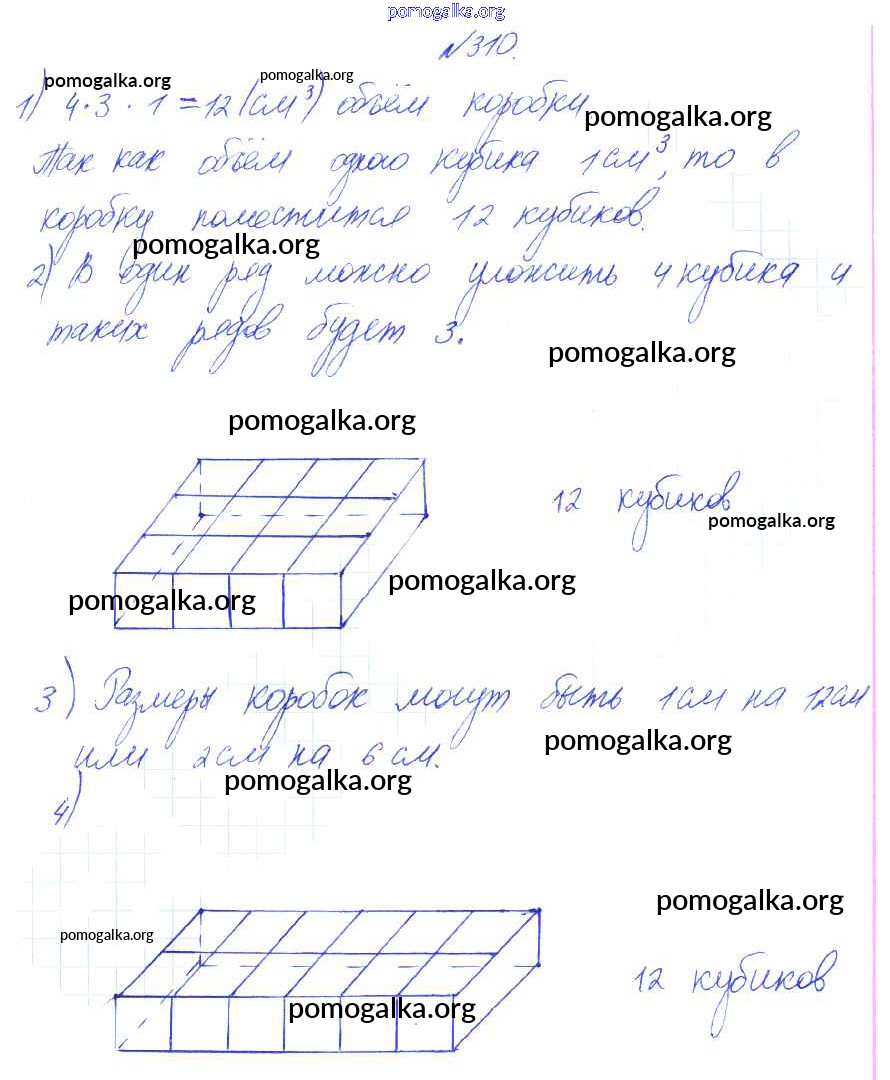 pomogalka.org
№310.
pomogalka.org pomogalka.org
1) 4·3·1=12(см³) объём коробки
pomogalka.org
Так как объём одного кубика 1см³, то в
коробку поместится 12 кубиков.
pomogalka.org
2) В один ряд можно уложить 4 кубика и
таких рядов будет 3.
pomogalka.org
pomogalka.org
12 кубиков
pomogalka.org
pomogalka.org
pomogalka.org
3) Размеры коробок могут быть 1см на 12см
или 2см на 6см.
pomogalka.org
pomogalka.org
4)
pomogalka.org
pomogalka.org
12 кубиков
pomogalka.org